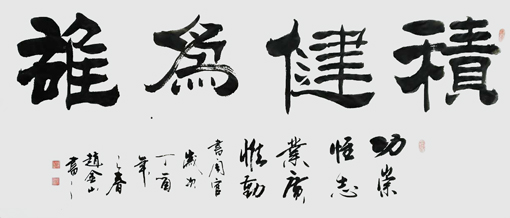 積健為雄
功崇
惟志
業廣
惟勤
書周官
歲次
丁酉
年
之春
趙金山
書